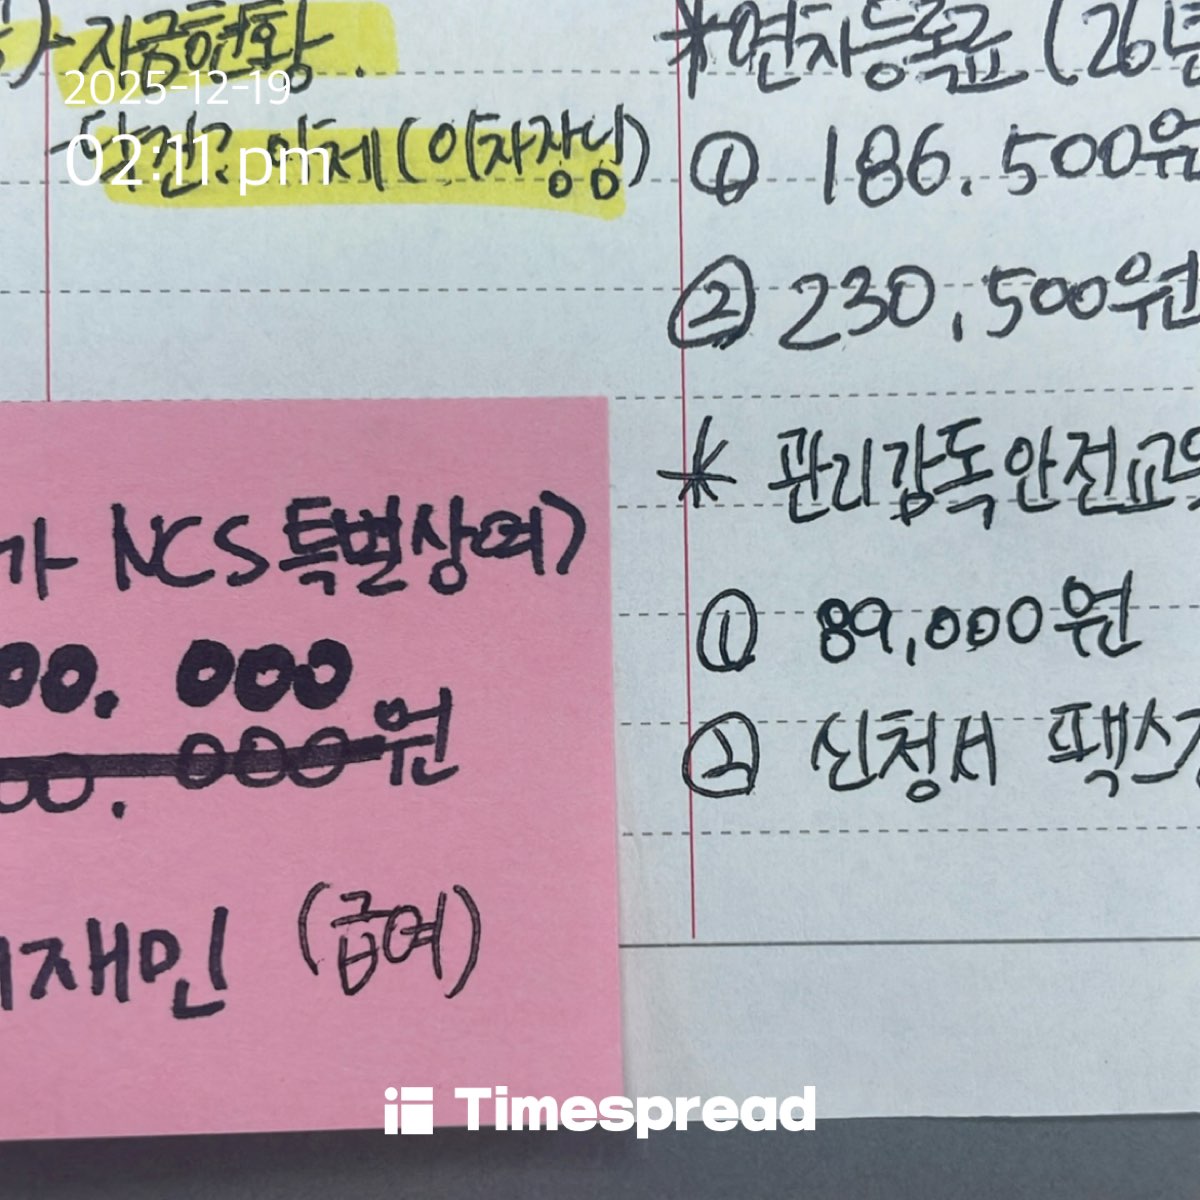 자금현황.
2025-12-19
02:11 pm
이제 (이차장님)
*연차등록료 (26년
① 186.500원
② 230,500원
* 관리감독안전교육
① 89,000원
② 신청서 팩스
가 NCS 특별상여)
00. 000
00. 000원
재민 (급여)
Timespread